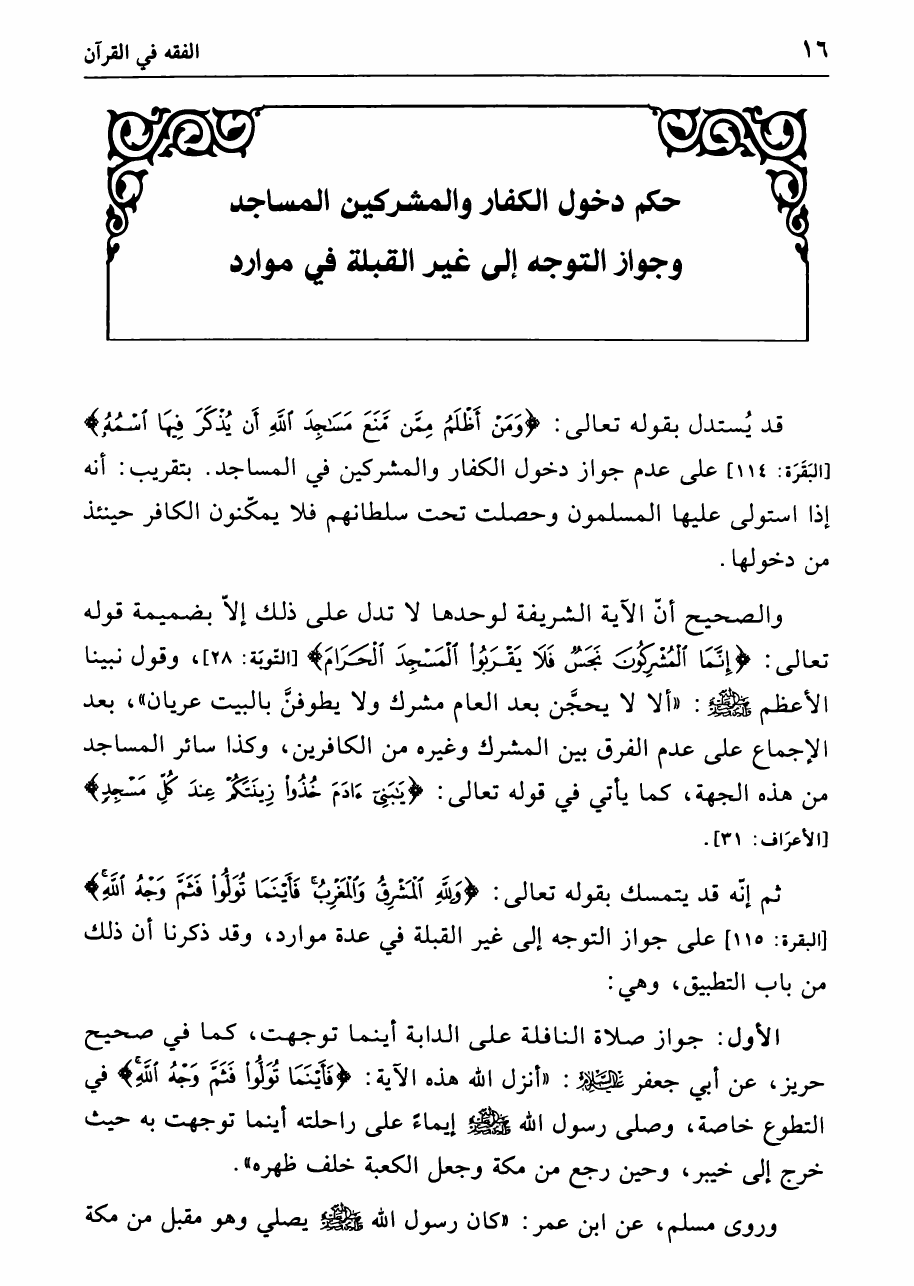 ١٦
الفقه في القرآن
حكم دخول الكفار والمشركين المساجد
وجواز التوجه إلى غير القبلة في موارد
قد يُستدل بقوله تعالى: ﴿وَمَنْ أَظْلَمُ مِمَّن مَّنَعَ مَسَٰجِدَ ٱللَّهِ أَن يُذْكَرَ فِيهَا ٱسْمُهُۥ﴾
[البَقَرَة: ١١٤] على عدم جواز دخول الكفار والمشركين في المساجد. بتقريب: أنه
إذا استولى عليها المسلمون وحصلت تحت سلطانهم فلا يمكّنون الكافر حينئذ
من دخولها.
والصحيح أنّ الآية الشريفة لوحدها لا تدل على ذلك إلاّ بضميمة قوله
تعالى: ﴿إِنَّمَا ٱلْمُشْرِكُونَ نَجَسٌ فَلَا يَقْرَبُوا۟ ٱلْمَسْجِدَ ٱلْحَرَامَ﴾ [التّوبَة: ٢٨]، وقول نبينا
الأعظم ﷺ: «ألا لا يحجَّن بعد العام مشرك ولا يطوفنَّ بالبيت عريان»، بعد
الإجماع على عدم الفرق بين المشرك وغيره من الكافرين، وكذا سائر المساجد
من هذه الجهة، كما يأتي في قوله تعالى: ﴿يَٰبَنِىٓ ءَادَمَ خُذُوا۟ زِينَتَكُمْ عِندَ كُلِّ مَسْجِدٍ﴾
[الأعرَاف: ٣١].
ثم إنّه قد يتمسك بقوله تعالى: ﴿وَلِلَّهِ ٱلْمَشْرِقُ وَٱلْمَغْرِبُ ۚ فَأَيْنَمَا تُوَلُّوا۟ فَثَمَّ وَجْهُ ٱللَّهِ ۚ﴾
[البقرة: ١١٥] على جواز التوجه إلى غير القبلة في عدة موارد، وقد ذكرنا أن ذلك
من باب التطبيق، وهي:
الأول: جواز صلاة النافلة على الدابة أينما توجهت، كما في صحيح
حريز، عن أبي جعفر عليه السلام: «أنزل الله هذه الآية: ﴿فَأَيْنَمَا تُوَلُّوا۟ فَثَمَّ وَجْهُ ٱللَّهِ ۚ﴾ في
التطوع خاصة، وصلى رسول الله ﷺ إيماءً على راحلته أينما توجهت به حيث
خرج إلى خيبر، وحين رجع من مكة وجعل الكعبة خلف ظهره».
وروى مسلم، عن ابن عمر: «كان رسول الله ﷺ يصلي وهو مقبل من مكة